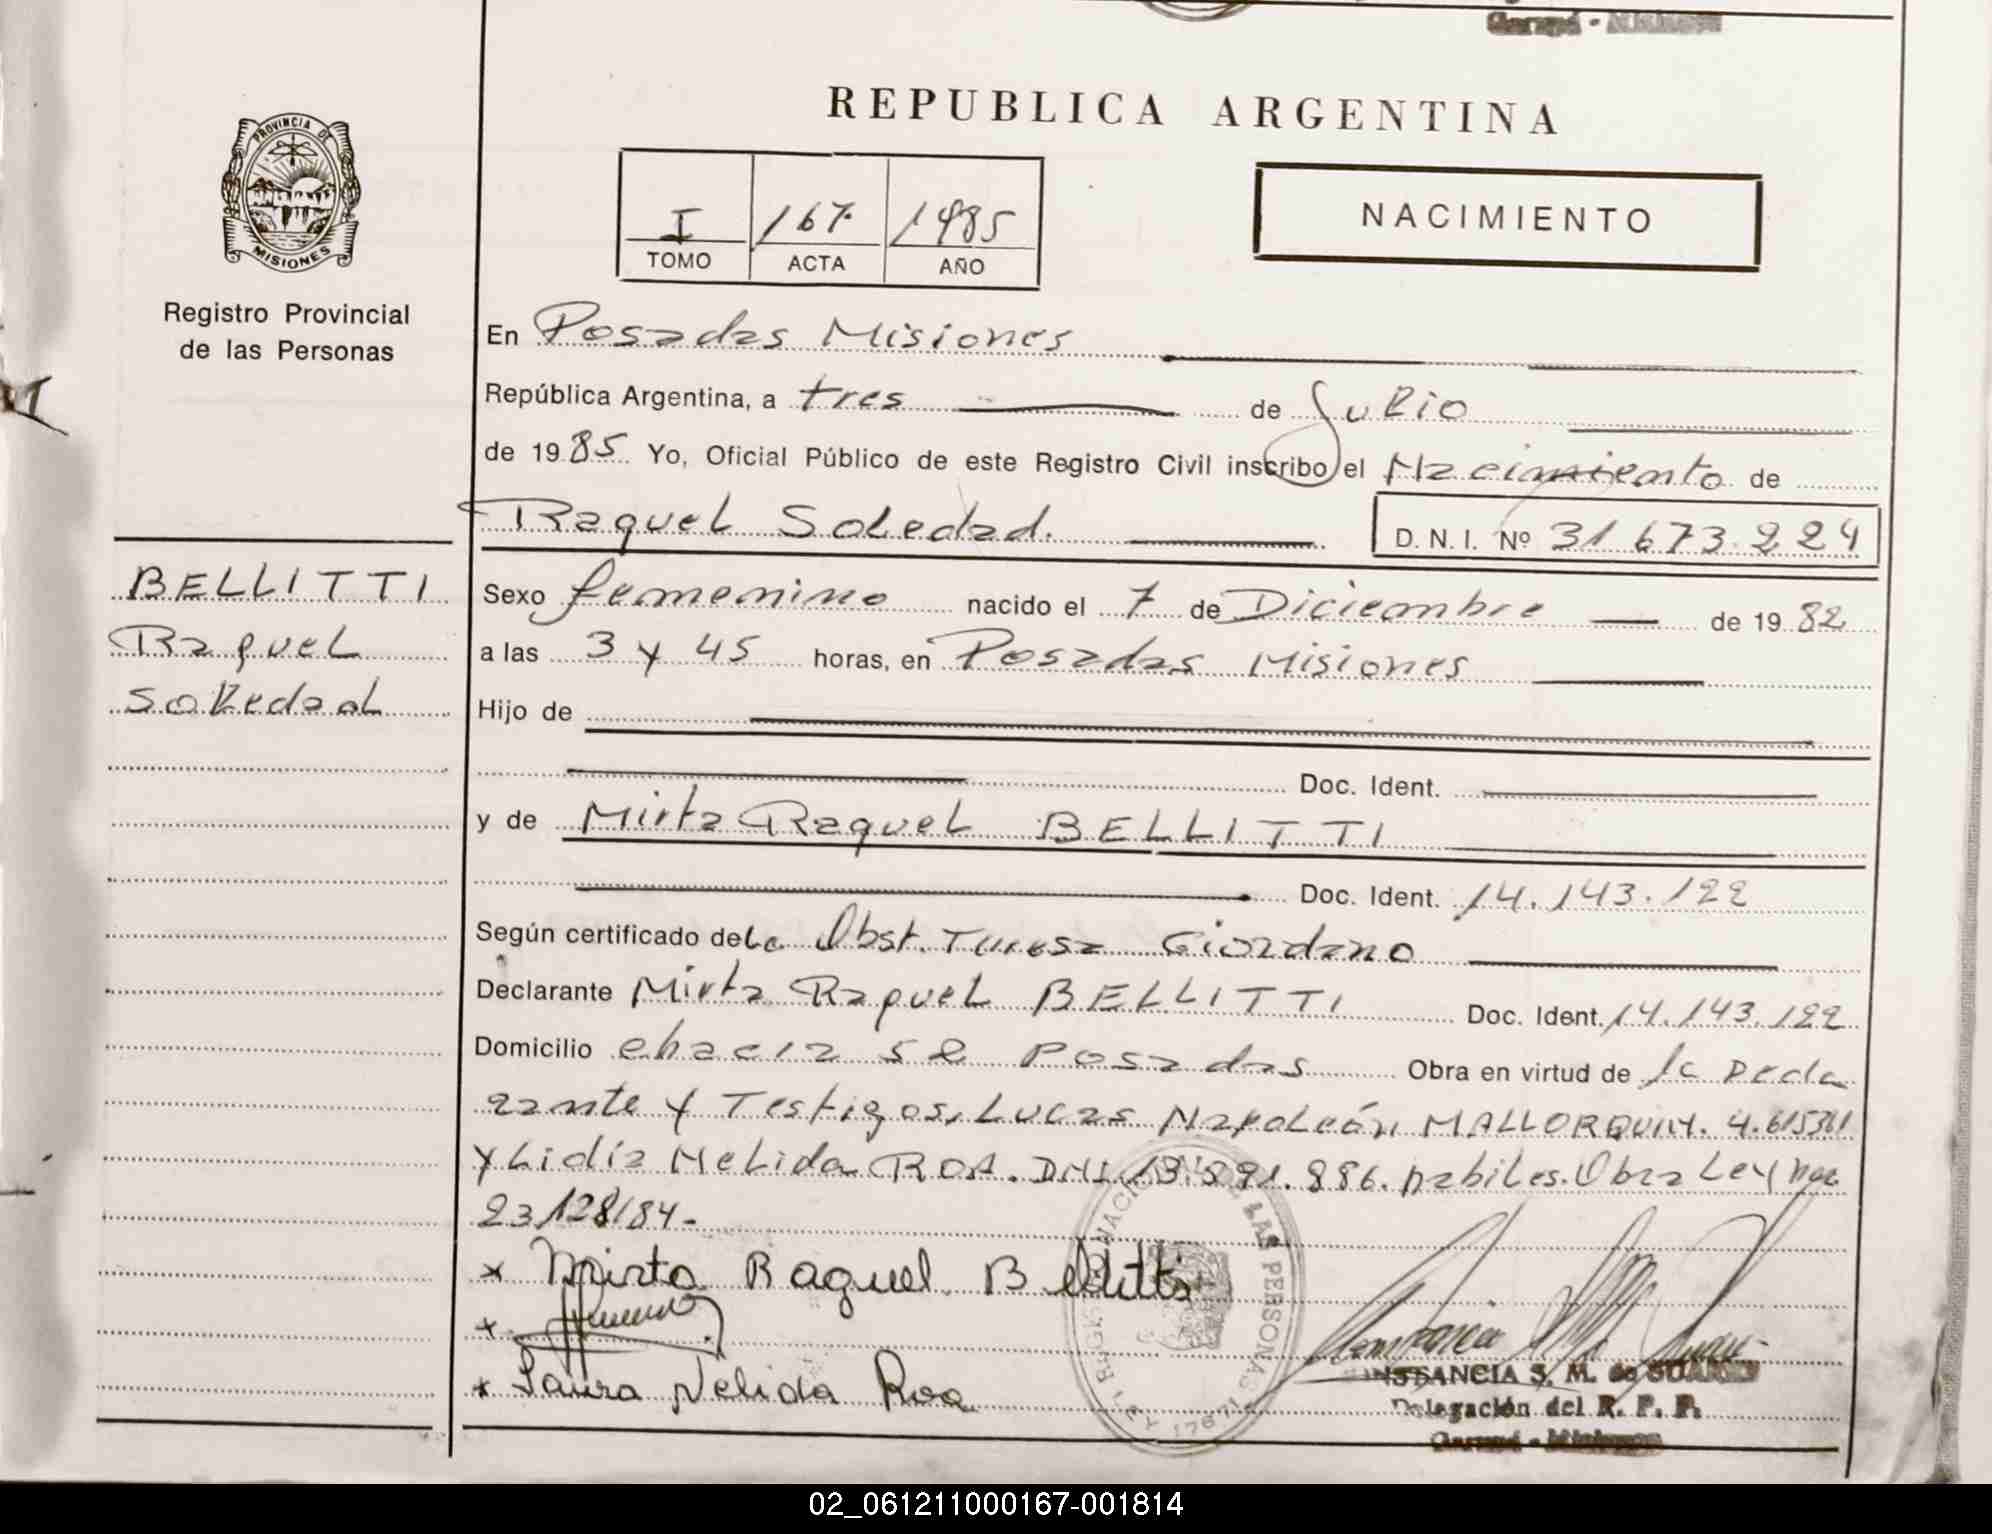 Garupá - Misiones
REPUBLICA ARGENTINA
PROVINCIA DE
MISIONES
I 167 1985
TOMO ACTA AÑO
NACIMIENTO
Registro Provincial
de las Personas
En Posadas Misiones
República Argentina, a tres de Julio
de 1985 Yo, Oficial Público de este Registro Civil inscribo el Nacimiento de
Raquel Soledad. D. N. I. Nº 31 673.224
BELLITTI
Raquel
Soledad
Sexo femenino nacido el 7 de Diciembre de 1982
a las 3 y 45 horas, en Posadas Misiones
Hijo de
Doc. Ident.
y de Mirta Raquel BELLITTI
Doc. Ident. 14.143.122
Según certificado de La Obst. Teresa Giordano
Declarante Mirta Raquel BELLITTI Doc. Ident. 14.143.122
Domicilio chacra 52 Posadas Obra en virtud de la Decla
rante y Testigos, Lucas Napoleón MALLORQUIN. 4.615361
y Lidia Nelida ROA. DNI 13.891.886. habiles. Obra Ley Nac
23128/84-
x Mirta Raquel Bellitti
x
x Laura Nelida Roa
LAS PERSONAS
17671
CONSTANCIA S. M. de SUAREZ
Delegación del R. P. P.
Garupá - Misiones
02_061211000167-001814